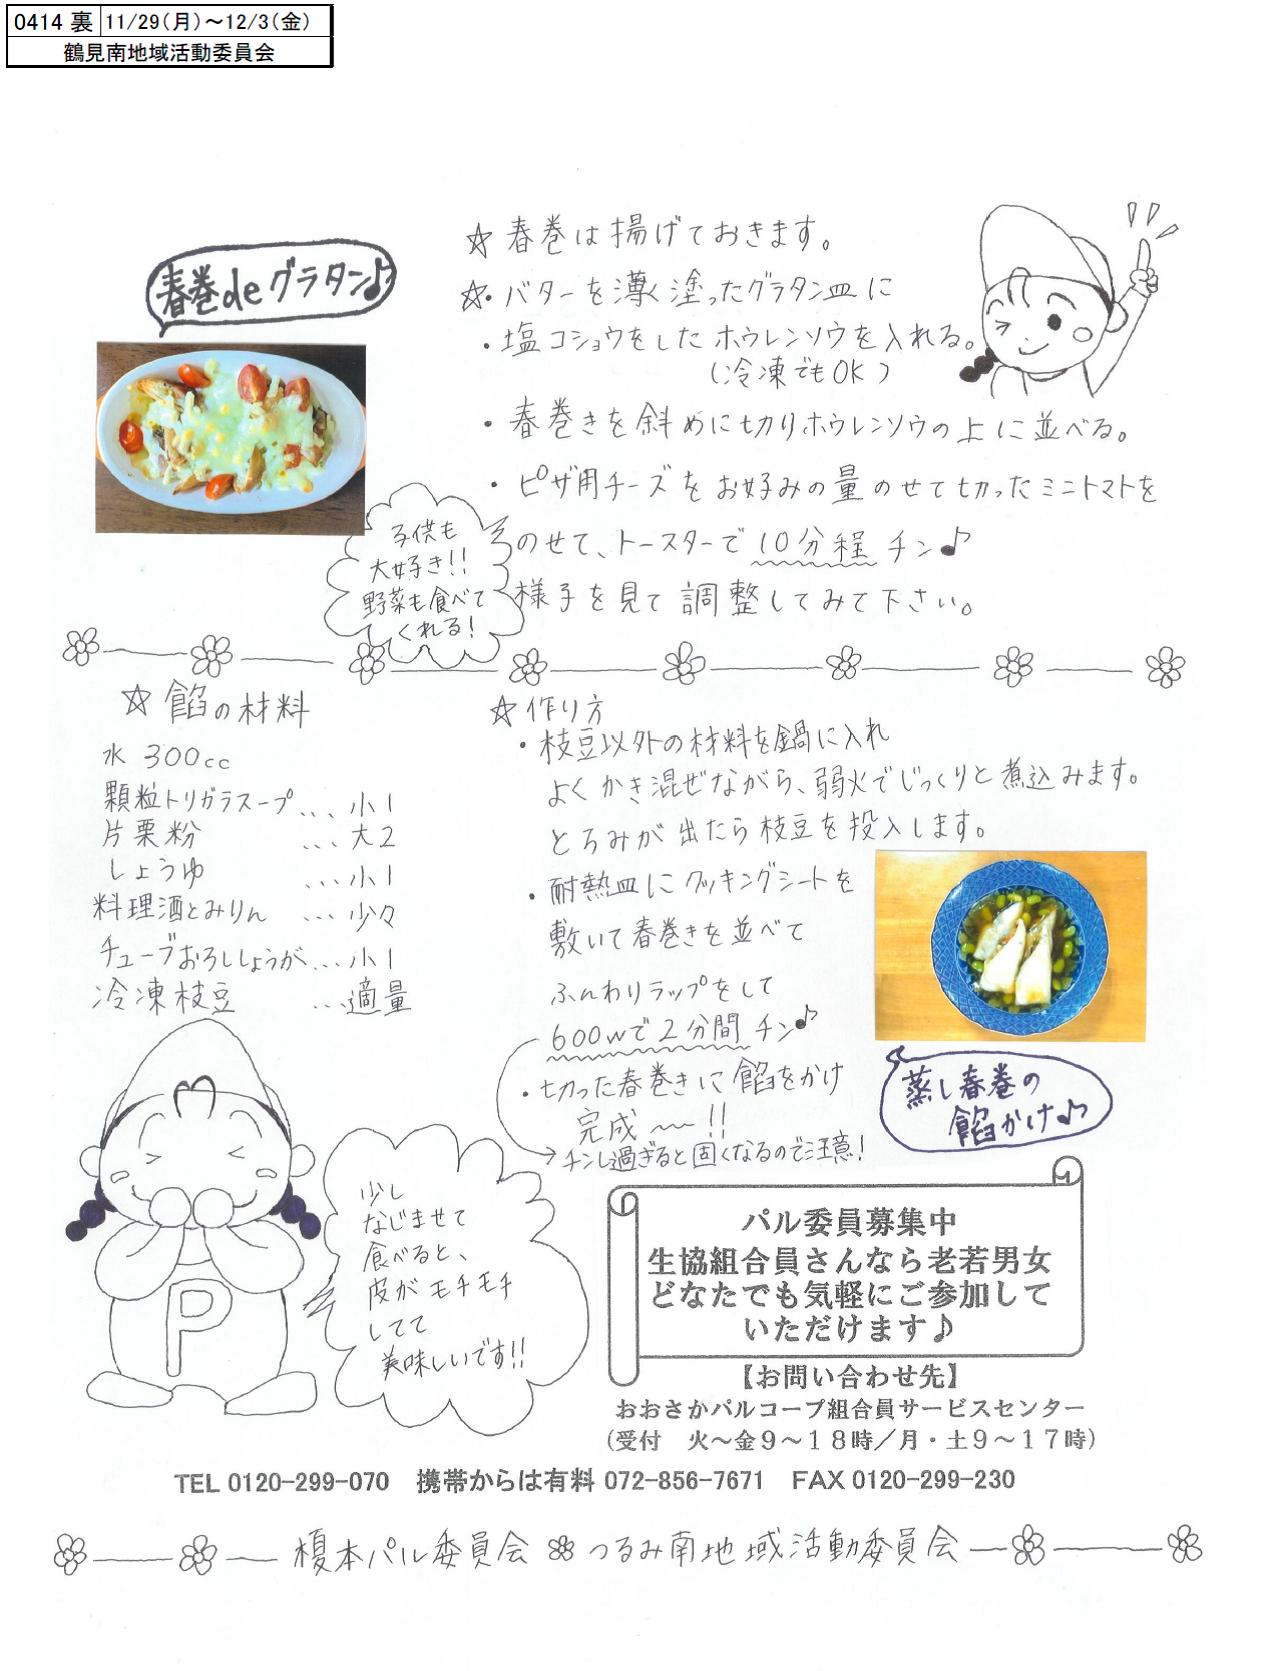 0414 裏 11/29(月)～12/3(金)
鶴見南地域活動委員会
春巻deグラタン♪
☆春巻は揚げておきます。
☆・バターを薄く塗ったグラタン皿に
・塩コショウをしたホウレンソウを入れる。
(冷凍でもOK)
・春巻きを斜めに切りホウレンソウの上に並べる。
・ピザ用チーズをお好みの量のせて切ったミニトマトを
のせて、トースターで10分程チン♪
様子を見て調整してみて下さい。
子供も
大好き!!
野菜も食べて
くれる!
☆餡の材料
水 300cc
顆粒トリガラスープ...小1
片栗粉 ...大2
しょうゆ ...小1
料理酒とみりん ...少々
チューブおろししょうが...小1
冷凍枝豆 ...適量
☆作り方
・枝豆以外の材料を鍋に入れ
よくかき混ぜながら、弱火でじっくりと煮込みます。
とろみが出たら枝豆を投入します。
・耐熱皿にクッキングシートを
敷いて春巻きを並べて
ふんわりラップをして
600wで2分間チン♪
・切った春巻きに餡をかけ
完成〜!!
→チンし過ぎると固くなるので注意!
蒸し春巻の
餡かけ♪
少し
なじませて
食べると、
皮がモチモチ
してて
美味しいです!!
P
パル委員募集中
生協組合員さんなら老若男女
どなたでも気軽にご参加して
いただけます♪
【お問い合わせ先】
おおさかパルコープ組合員サービスセンター
(受付 火～金9～18時／月・土9～17時)
TEL 0120-299-070 携帯からは有料 072-856-7671 FAX 0120-299-230
榎本パル委員会 つるみ南地域活動委員会